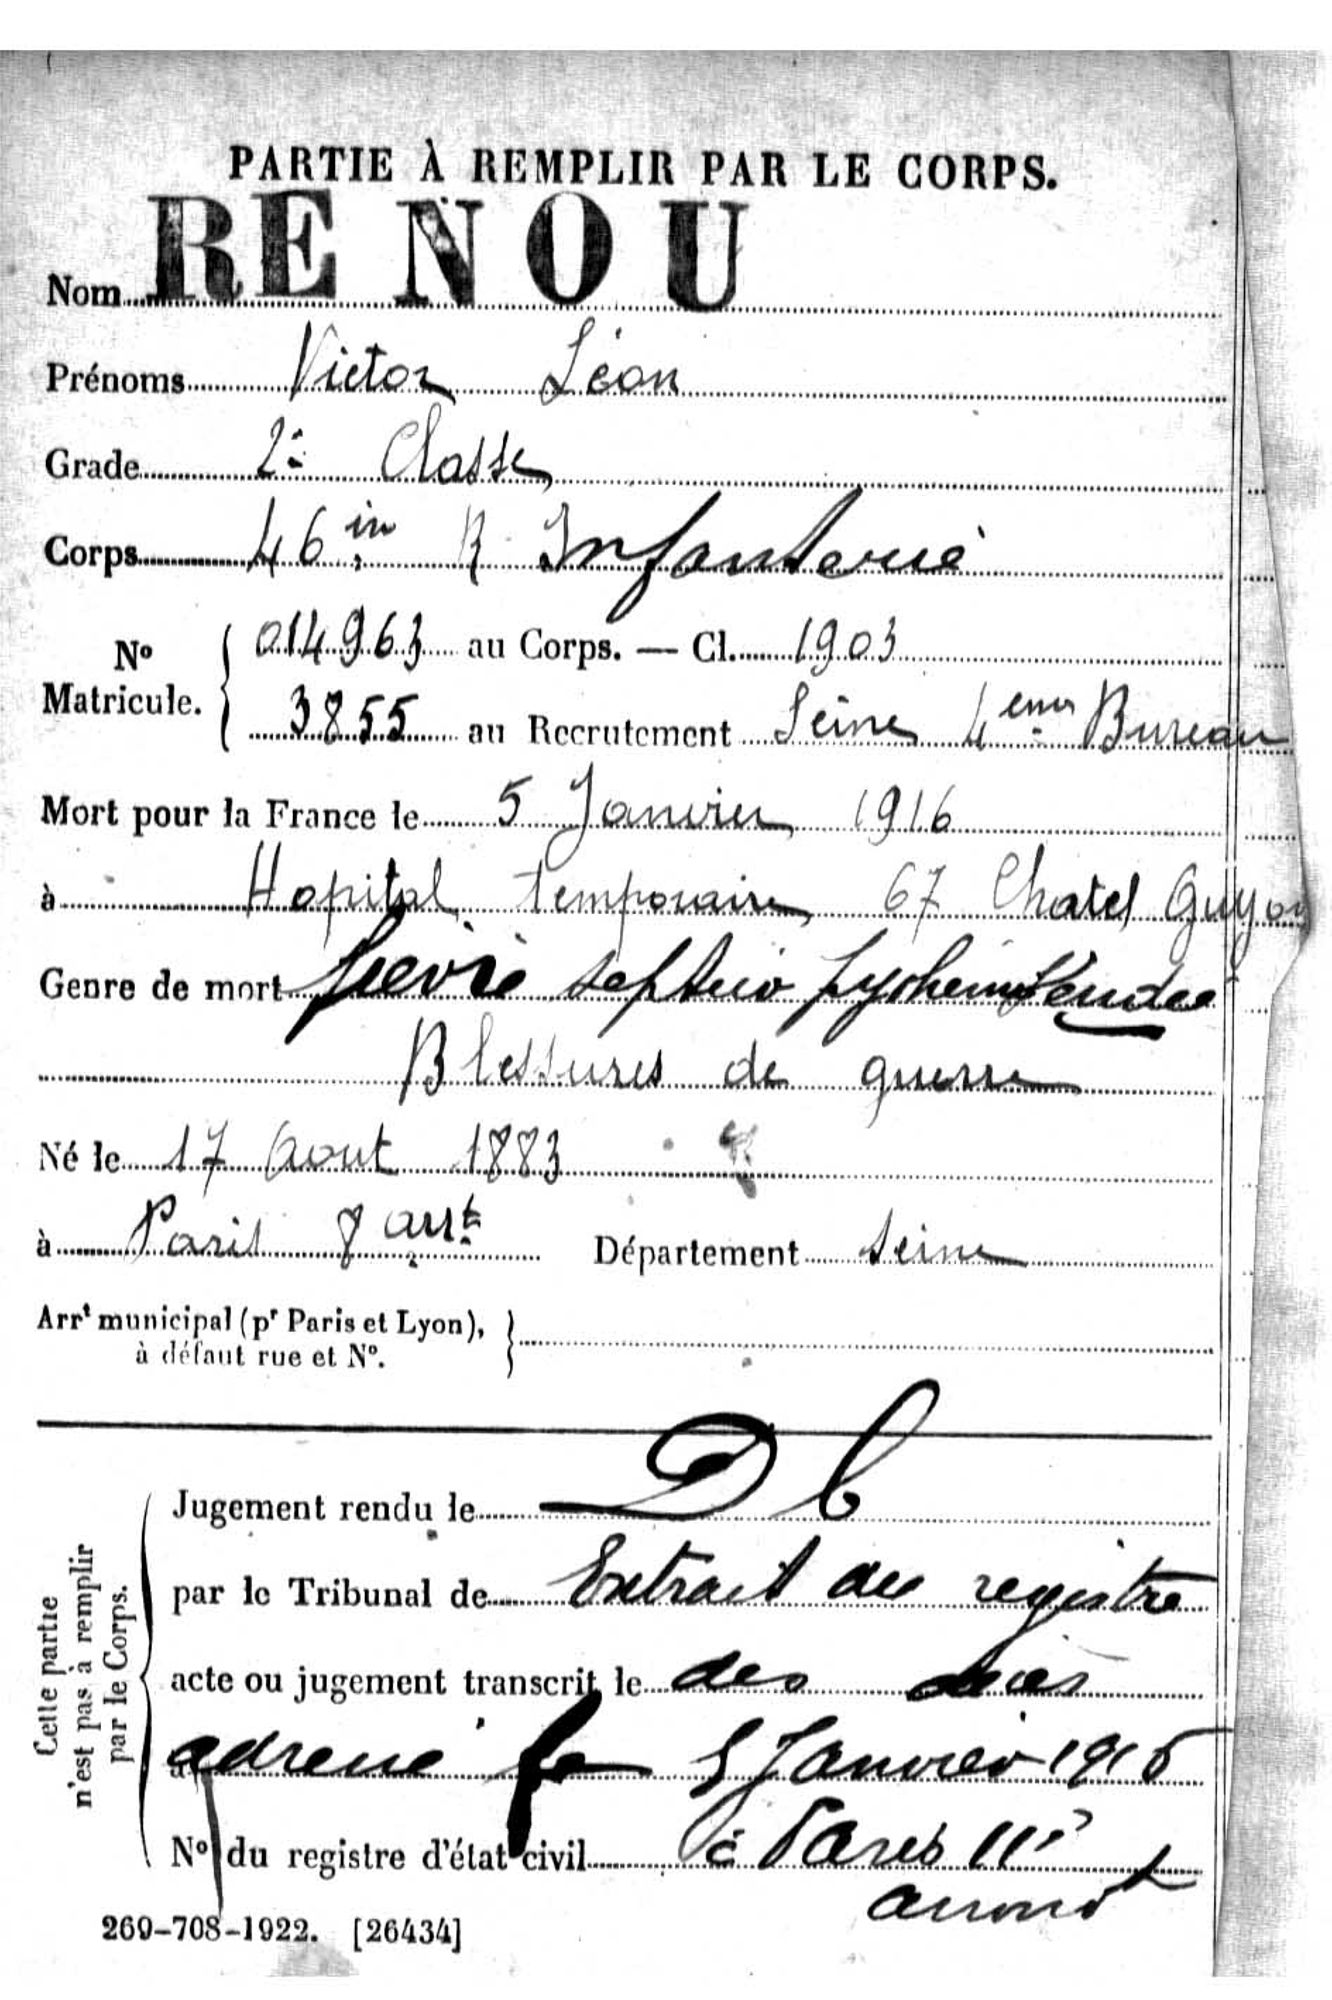 PARTIE À REMPLIR PAR LE CORPS.
Nom RENOU
Prénoms Victor Léon
Grade 2e Classe
Corps 46 in R Infanterie
No Matricule. 014963 au Corps. — Cl. 1903
3855 au Recrutement Seine 4eme Bureau
Mort pour la France le 5 Janvier 1916
à Hopital temporaire 67 Chatel Guyon
Genre de mort fievre
Blessures de guerre
Né le 17 Aout 1883
à Paris 8 arrt Département Seine
Arrt municipal (pr Paris et Lyon),
à défaut rue et No.
Cette partie n'est pas à remplir par le Corps.
Jugement rendu le DC
par le Tribunal de Extrait du registre
acte ou jugement transcrit le des décès
à adressé le 5 Janvier 1916
No du registre d'état civil à Paris 11e
arrond
269-708-1922. [26434]